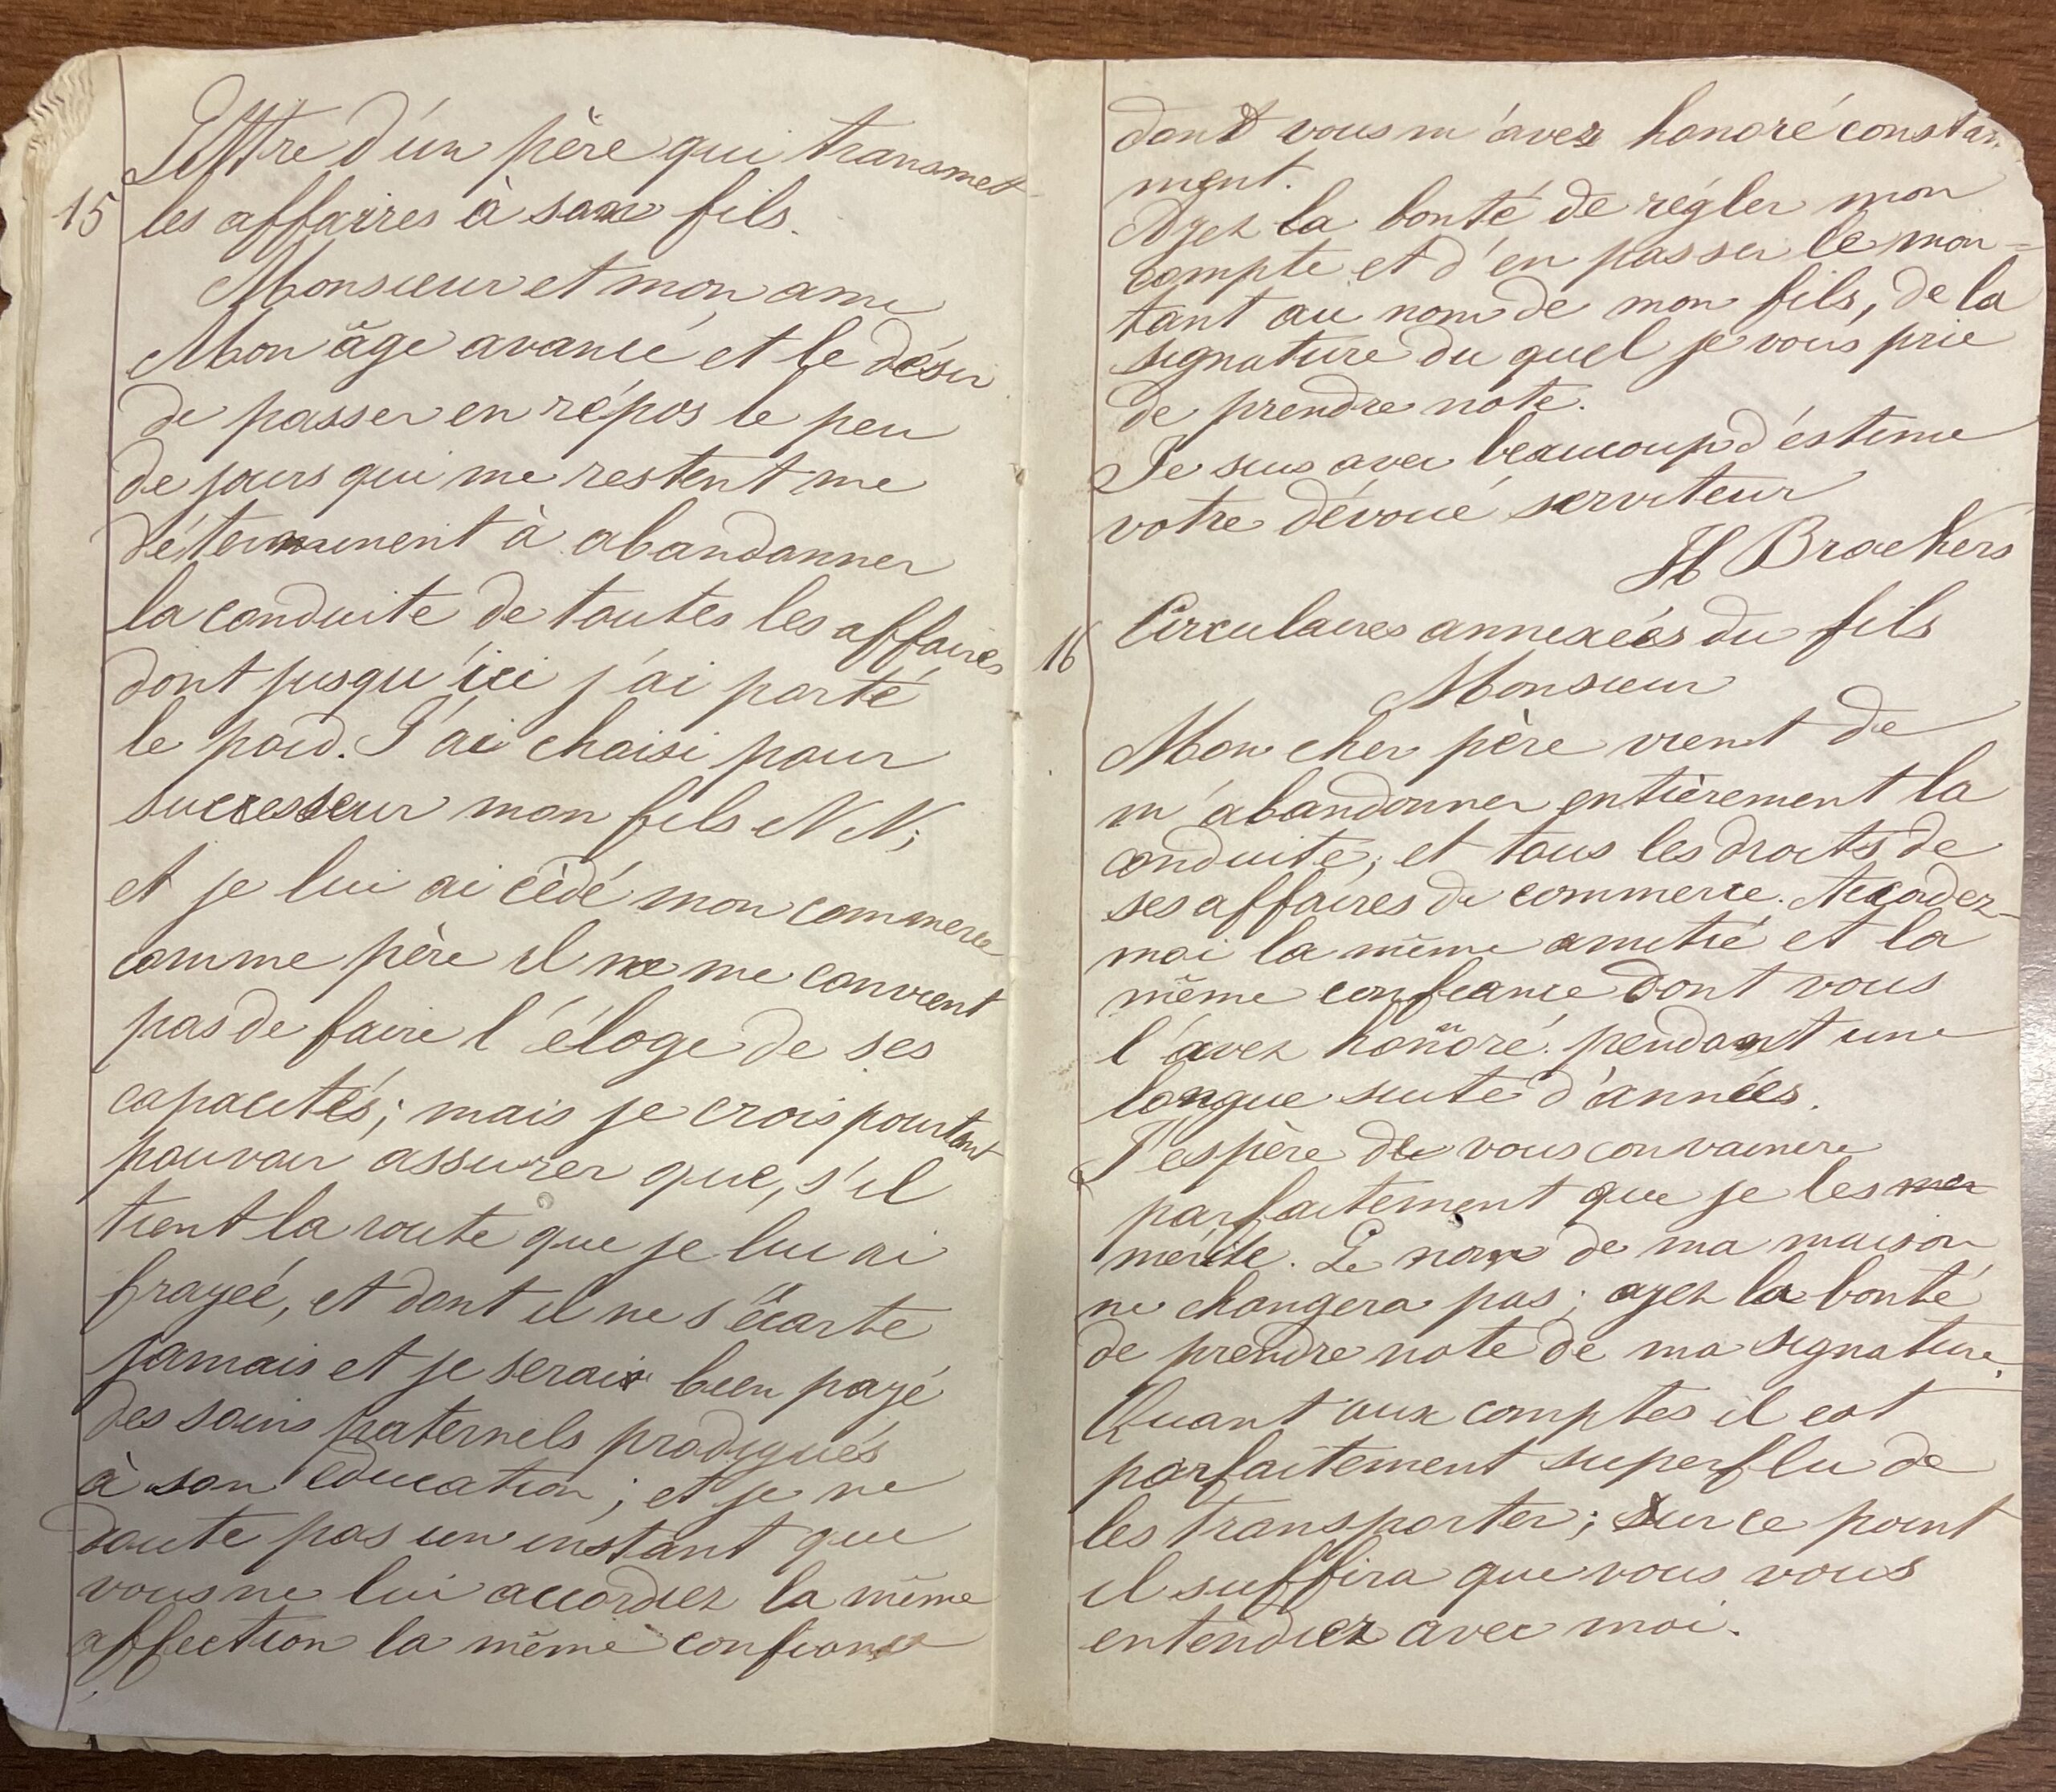 Lettre d'un père qui transmet
15 les affaires à son fils.
Monsieur et mon ami
Mon âge avancé et le désir
de passer en répos le peu
de jours qui me restent me
déterminent à abandonner
la conduite de toutes les affaires
dont jusqu'ici j'ai porté
le poid. J'ai choisi pour
successeur mon fils N N;
et je lui ai cèdé mon commerce
comme père il ne me convient
pas de faire l'éloge de ses
capacités; mais je crois pourtant
pouvoir assurer que, s'il
tient la route que je lui ai
frayeé, et dont il ne s'écarte
jamais et je serais bien payé
des soins paternels prodigués
à son éducation; et je ne
doute pas un instant que
vous ne lui accordiez la même
affection la même confiance
dont vous m'avez honoré constam
ment.
Ayez la bonté de régler mon
compte et d'en passer le mon=
tant au nom de mon fils, de la
signature du quel je vous prie
de prendre note.
Je suis avec beaucoup d'éstime
votre dévoué serviteur
H Brackers
16 Circulaires annexeés du fils
Monsieur
Mon cher père vient de
m'abandonner entièrement la
conduite, et tous les droits de
ses affaires de commerce. Accordez-
moi la même amitié et la
même confiance dont vous
l'avez honoré pendant une
longue suite d'années.
J'espère de vous convaincre
parfaitement que je les
mérite. Le nom de ma maison
ne changera pas; ayez la bonté
de prendre note de ma signature.
Quant aux comptes il est
parfaitement superflu de
les transporter; sur ce point
il suffira que vous vous
entendiez avec moi.